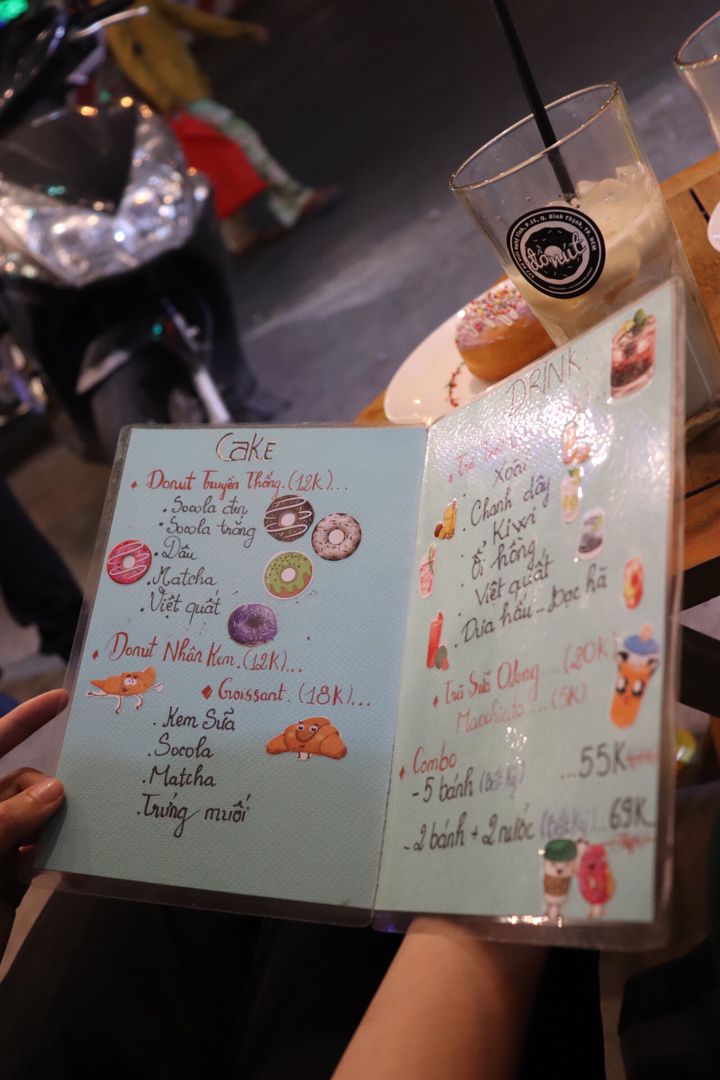 CAKE
Donut Truyền Thống.(12K)...
. Socola đen
. Socola trắng
. Dâu
. Matcha
. Việt quất
Donut Nhân Kem.(12K)...
Croissant.(18K)...
. Kem Sữa
. Socola
. Matcha
. Trứng muối
DRINK
. Xoài
. Chanh dây
. Kiwi
. Ổi hồng
. Việt quất
. Dưa hấu - Bạc hà
Trà Sữa Olong....(20K)
Macchiato....(5K)
Combo
- 5 bánh (bất kỳ) ...55K
- 2 bánh + 2 nước (bất kỳ)..69K
P.25, Q. Bình Thạnh, TP. HCM
đônút